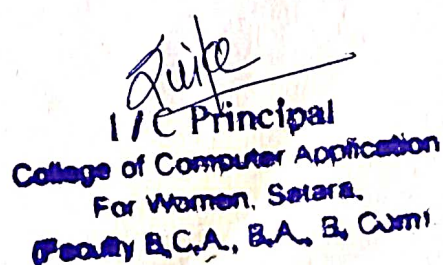 I/C Principal
College of Computer Application
For Women, Satara.
(Faculty B.C.A., B.A., B, Com)